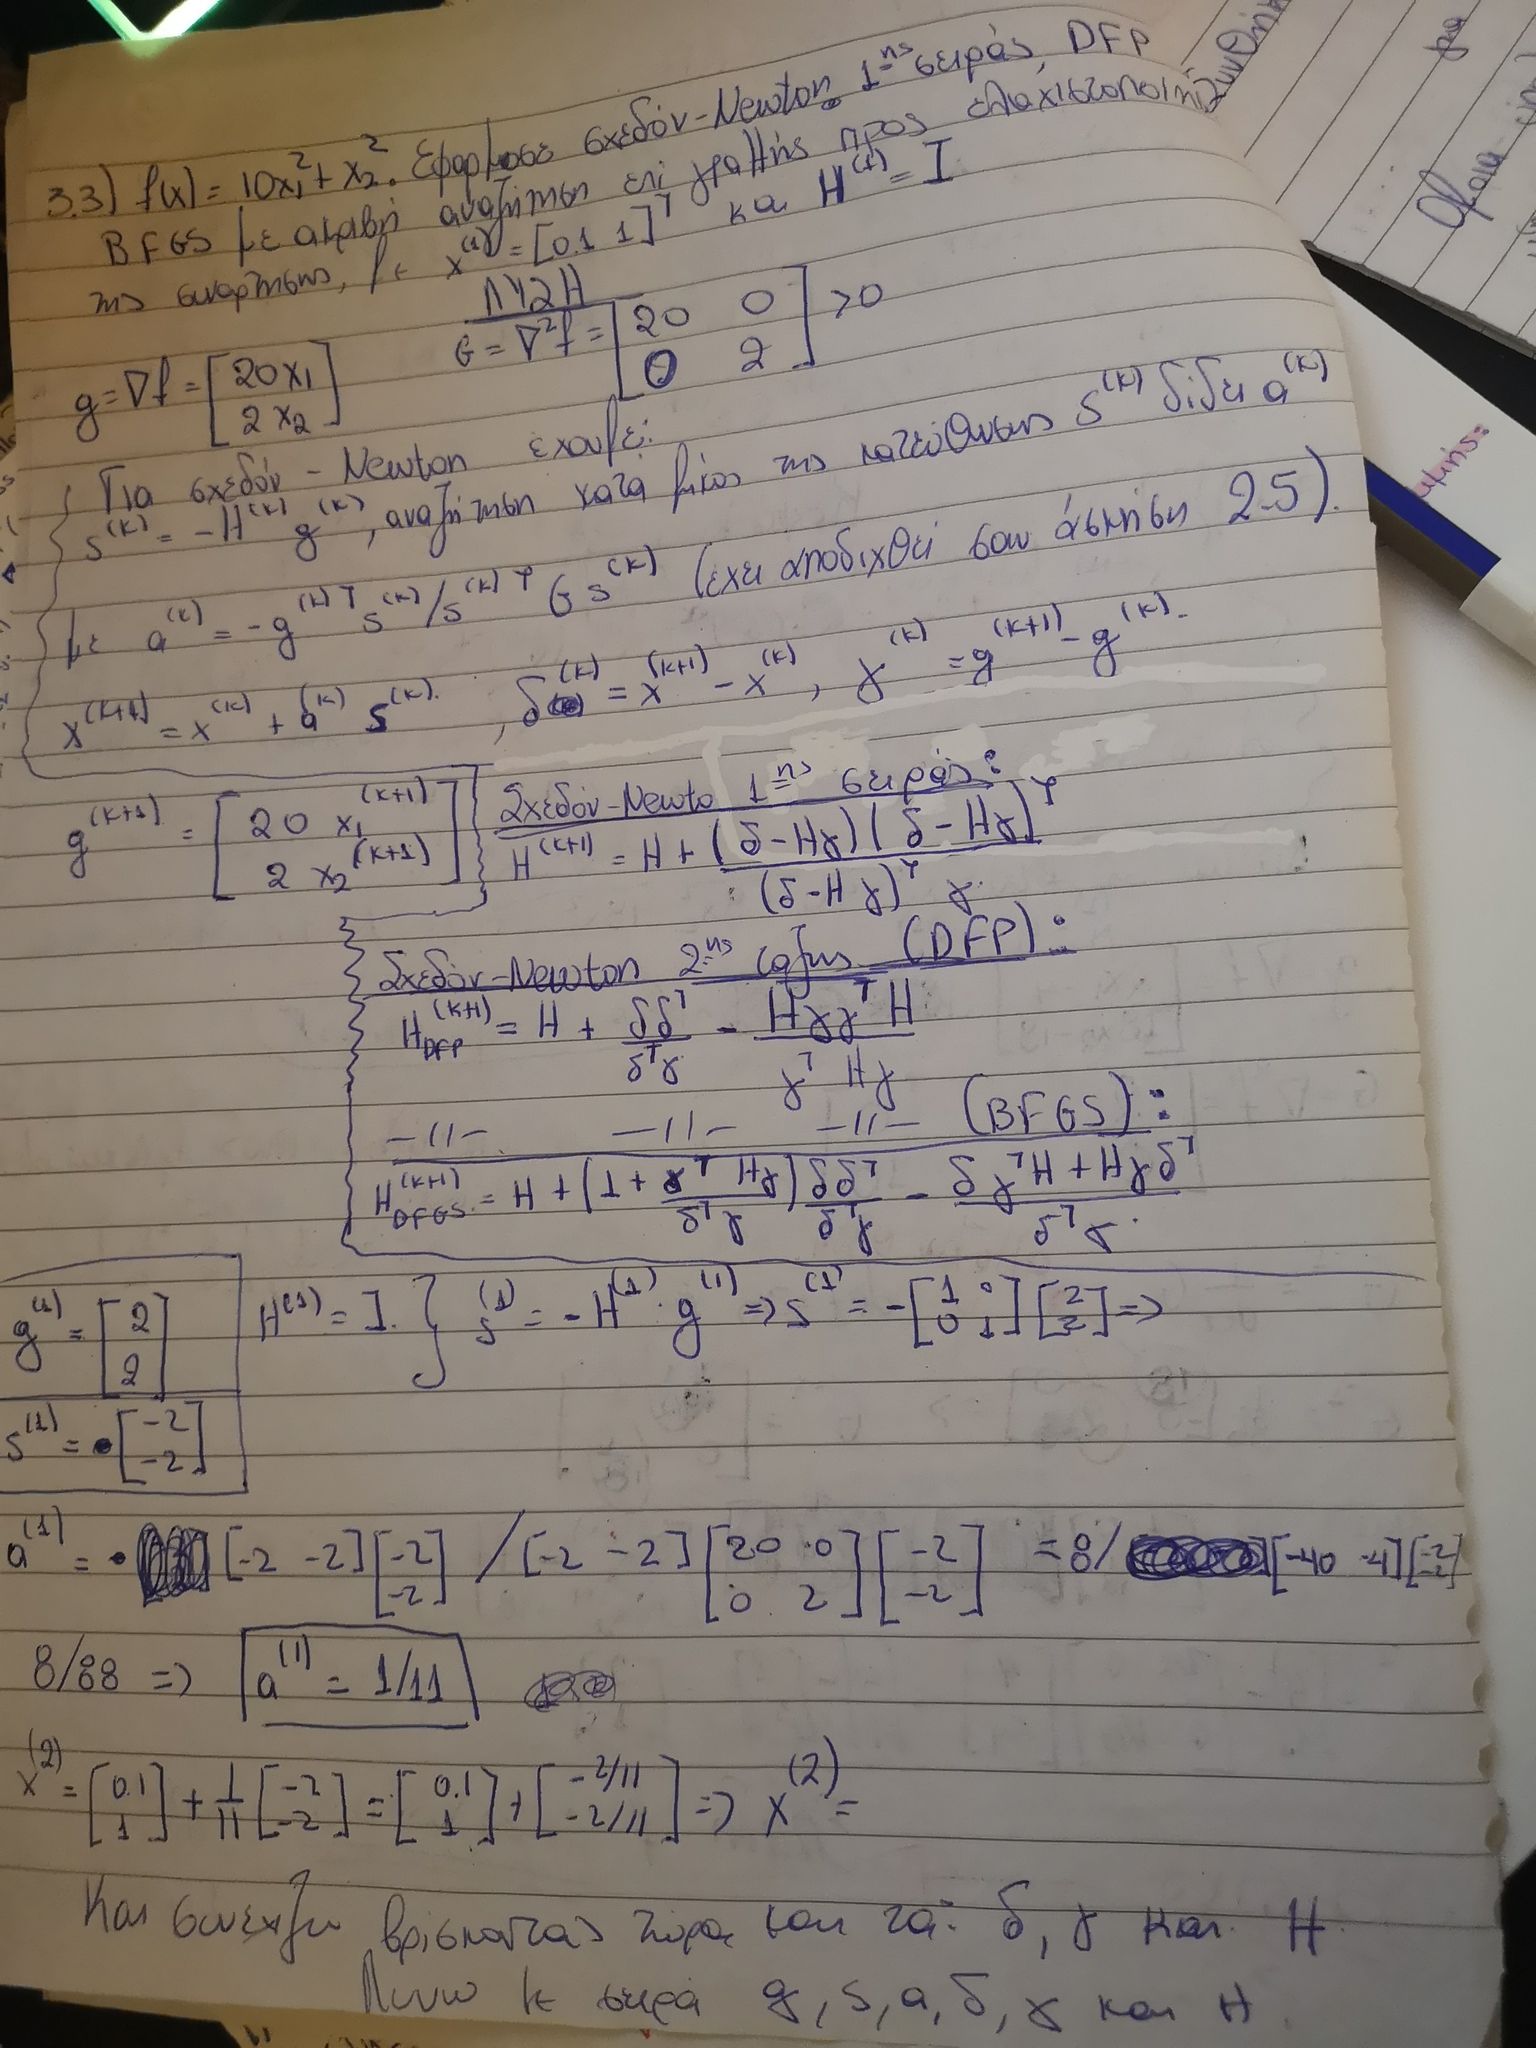 3.3) f(x) = 10x₁² + x₂². Εφαρμοσε σχεδόν-Newton 1ης σειράς, DFP
BFGS με ακριβή αναζήτηση επί γραμμής προς ελαχιστοποίηση
της συναρτησης, με x⁽¹⁾ = [0.1 1]ᵀ και H⁽¹⁾ = I
ΛΥΣΗ
g = ∇f = [20x₁ ; 2x₂] G = ∇²f = [20 0 ; 0 2] > 0
Για σχεδόν - Newton έχουμε:
s⁽ᵏ⁾ = -H⁽ᵏ⁾ g⁽ᵏ⁾, αναζήτηση κατά μήκος της κατεύθυνσης s⁽ᵏ⁾ δίδει a⁽ᵏ⁾
με a⁽ᵏ⁾ = -g⁽ᵏ⁾ᵀ s⁽ᵏ⁾/s⁽ᵏ⁾ᵀ G s⁽ᵏ⁾ (έχει αποδιχθεί σαν άσκηση 2.5).
x⁽ᵏ⁺¹⁾ = x⁽ᵏ⁾ + a⁽ᵏ⁾ s⁽ᵏ⁾, δ⁽ᵏ⁾ = x⁽ᵏ⁺¹⁾ - x⁽ᵏ⁾, γ⁽ᵏ⁾ = g⁽ᵏ⁺¹⁾ - g⁽ᵏ⁾.
g⁽ᵏ⁺¹⁾ = [20 x₁⁽ᵏ⁺¹⁾ ; 2 x₂⁽ᵏ⁺¹⁾]
Σχεδόν-Newto 1ης σειράς:
H⁽ᵏ⁺¹⁾ = H + (δ-Hγ)(δ-Hγ)ᵀ / (δ-Hγ)ᵀ γ
Σχεδόν-Newton 2ης ταξης (DFP):
H_DFP⁽ᵏ⁺¹⁾ = H + δδᵀ/δᵀγ - Hγγᵀ H/γᵀ Hγ
-//- -//- -//- (BFGS):
H_BFGS⁽ᵏ⁺¹⁾ = H + (1 + γᵀ Hγ/δᵀγ) δδᵀ/δᵀγ - δγᵀH + Hγδᵀ/δᵀγ.
g⁽¹⁾ = [2 ; 2] H⁽¹⁾ = I. } s⁽¹⁾ = -H⁽¹⁾·g⁽¹⁾ => s⁽¹⁾ = -[1 0 ; 0 1][2 ; 2] =>
s⁽¹⁾ = [-2 ; -2]
a⁽¹⁾ = [-2 -2][-2 ; -2] / [-2 -2][20 0 ; 0 2][-2 ; -2] = 8/[-40 -4][-2 ; -2]
8/88 => a⁽¹⁾ = 1/11
x⁽²⁾ = [0.1 ; 1] + 1/11 [-2 ; -2] = [0.1 ; 1] + [-2/11 ; -2/11] => x⁽²⁾ =
Και συνεχίζω βρίσκοντας τώρα και τα: δ, γ και H.
με σειρά g, s, a, δ, γ και H.